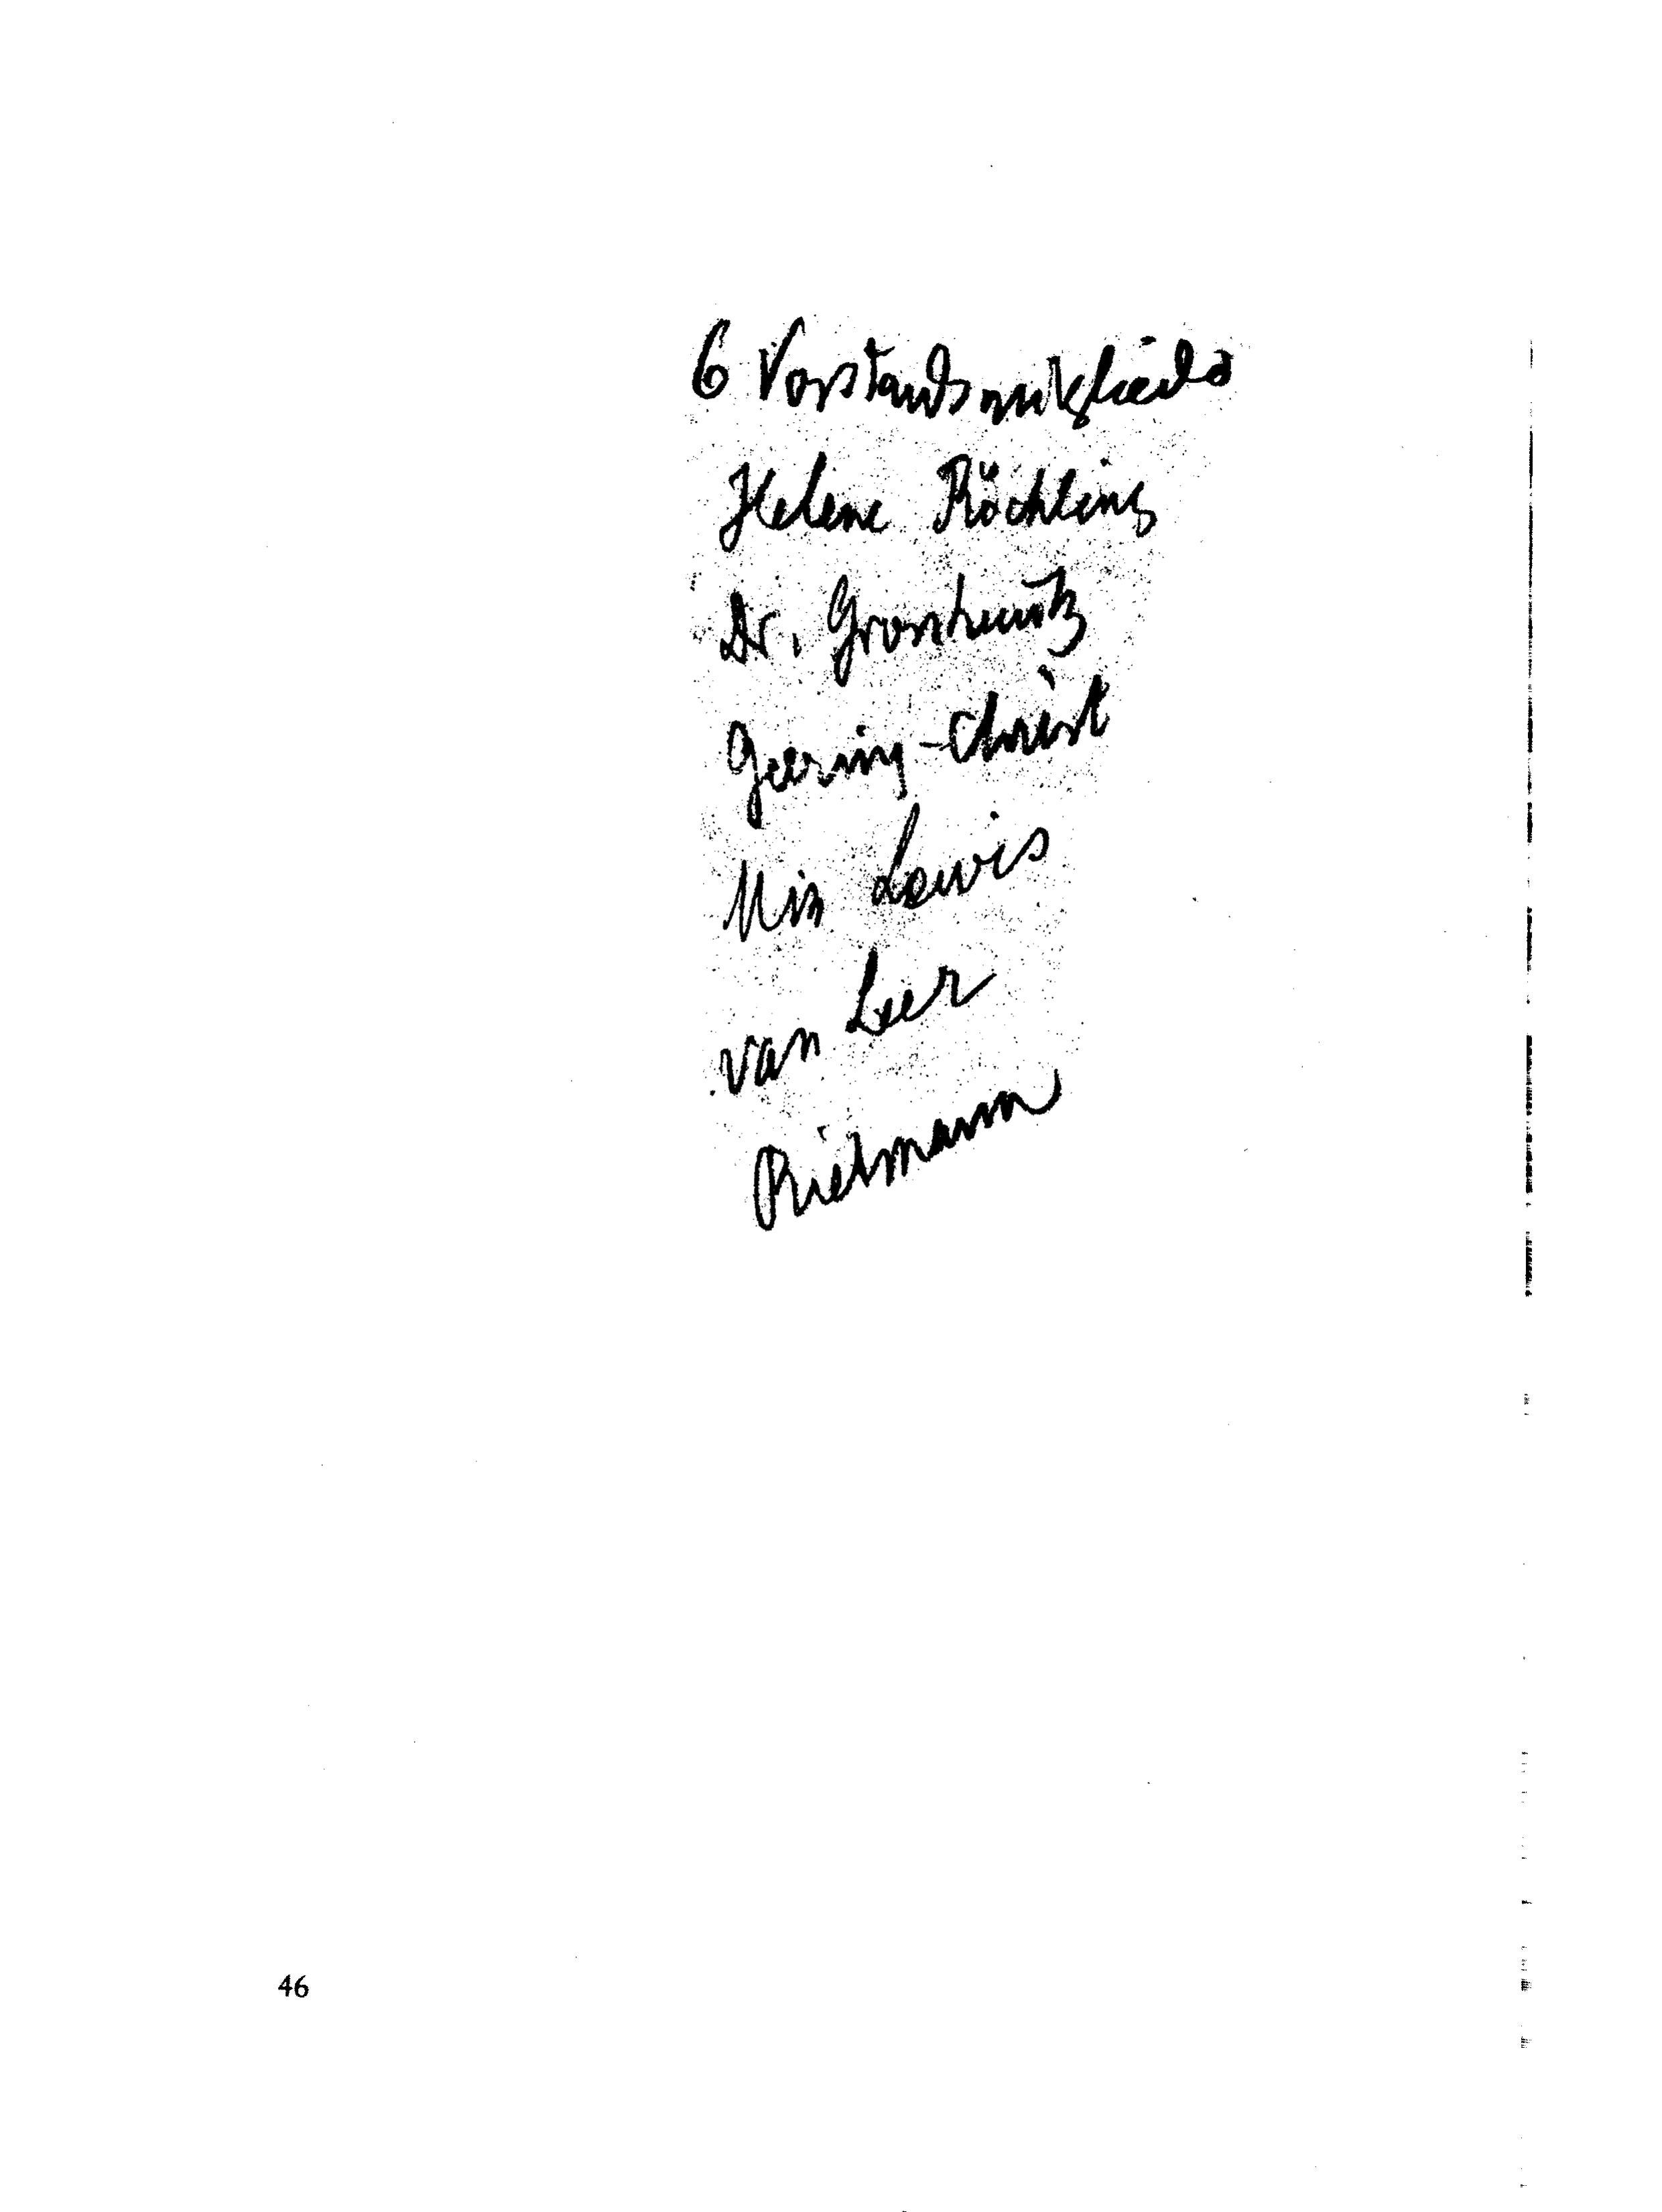 6 Vorstandsmitglieder
Helene Röchling
Dr. Grosheintz
Geering-Christ
Miss Lewis
van Leer
Rietmann
46